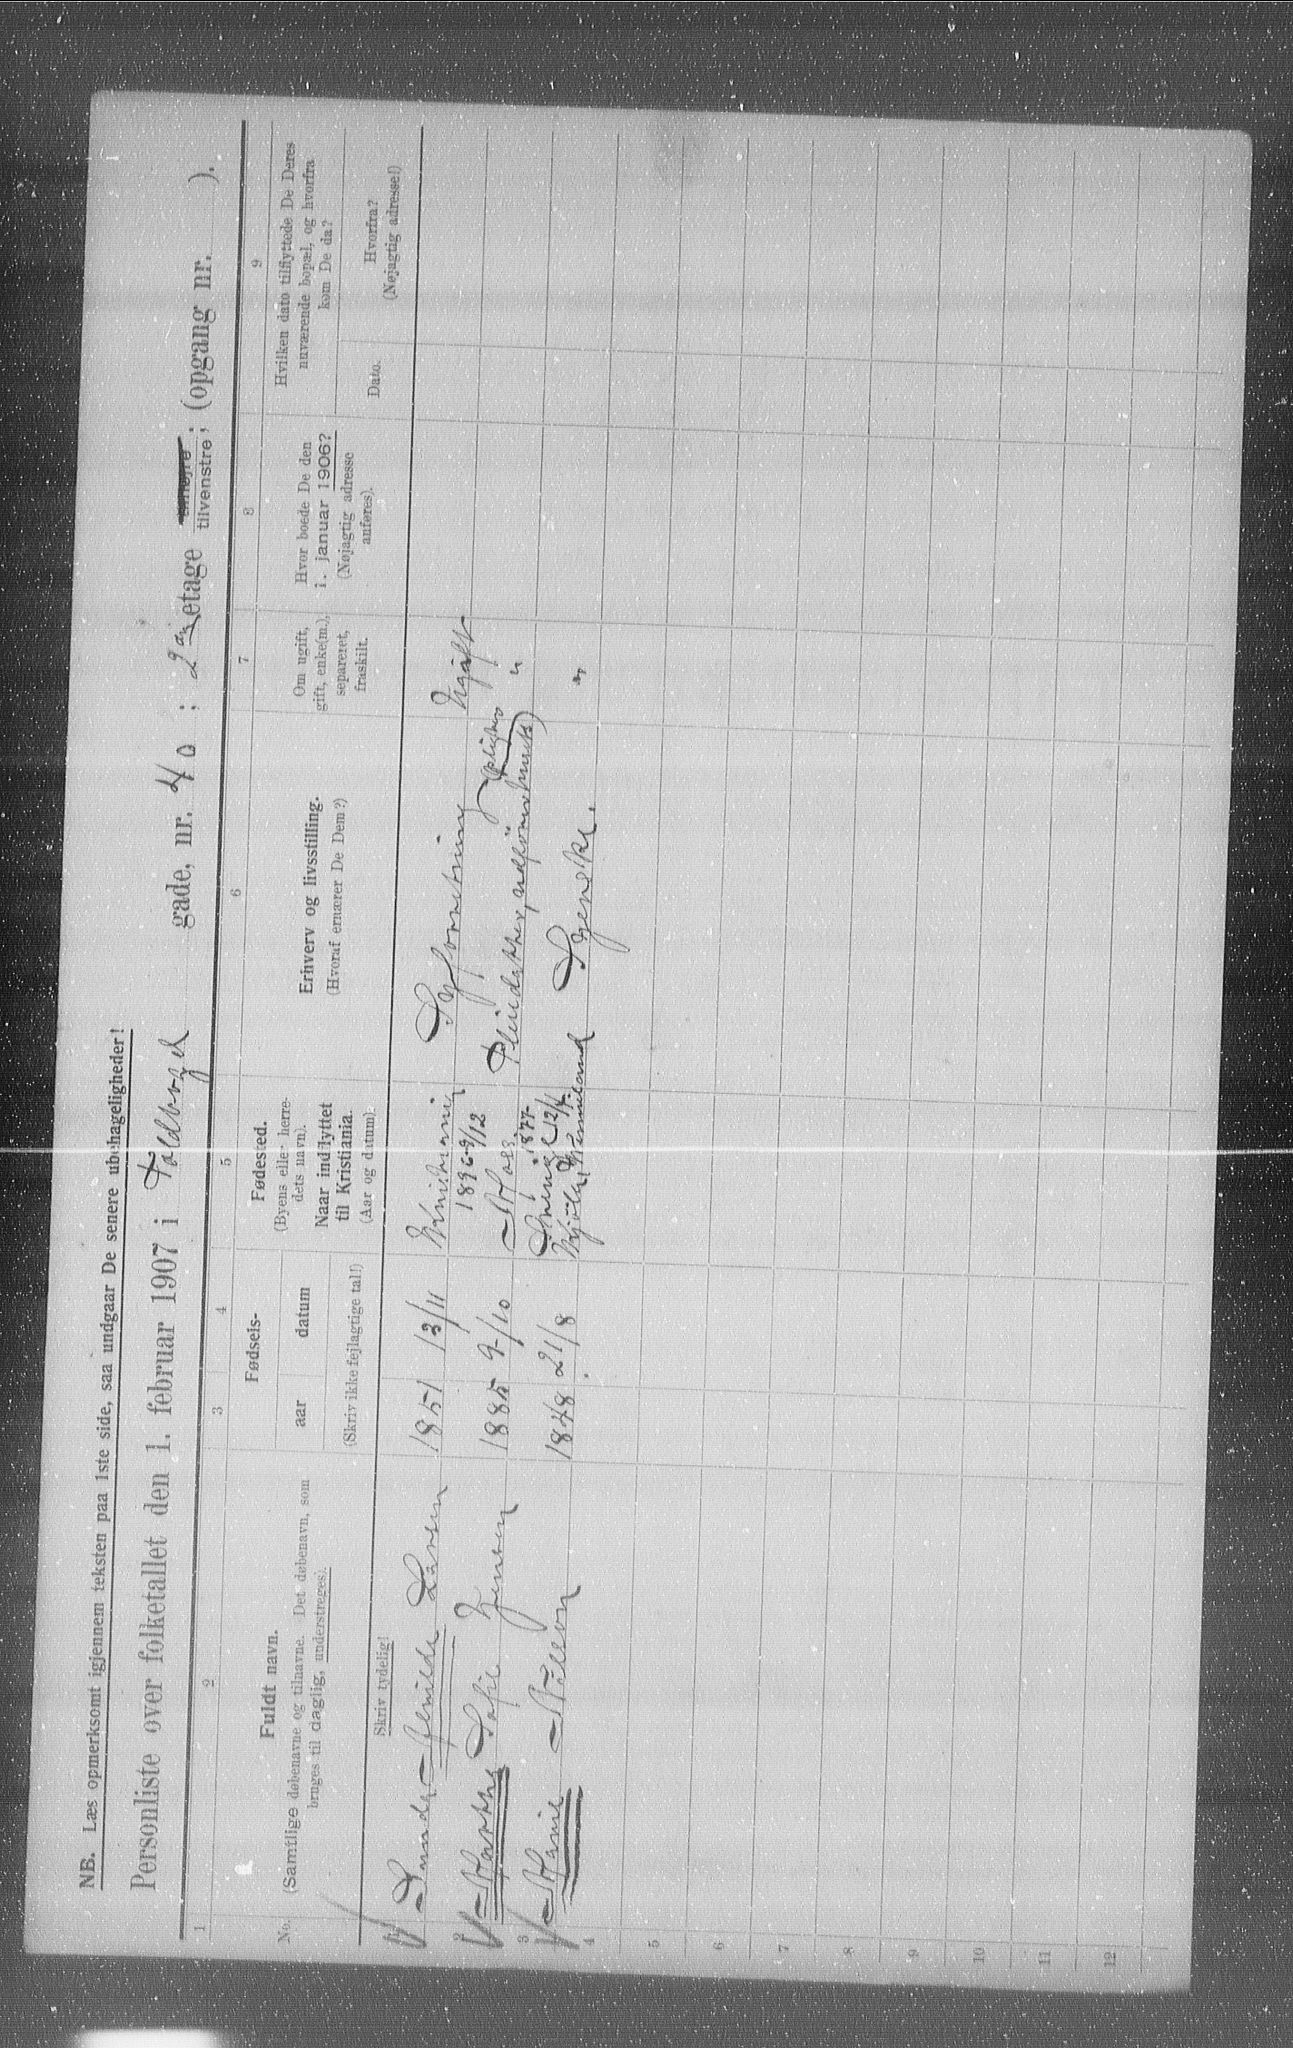 NB. Læs opmerksomt igjennem teksten paa 1ste side, saa undgaar De senere ubehageligheder!
Personliste over folketallet den 1. februar 1907 i Toldbogd gade, nr. 40 ; 2den etage tilhøjre tilvenstre; (opgang nr. ).
1 2 3 4 5 6 7 8 9
No.
Fuldt navn.
(Samtlige døbenavne og tilnavne. Det døbenavn, som
bruges til daglig, understreges).
Skriv tydelig!
Fødsels-
aar
datum
(Skriv ikke fejlagtige tal!)
Fødested.
(Byens eller herre-
dets navn).
Naar indflyttet
til Kristiania.
(Aar og datum).
Erhverv og livsstilling.
(Hvoraf ernærer De Dem?)
Om ugift,
gift, enke(m.),
separeret,
fraskilt.
Hvor boede De den
1. januar 1906?
(Nøjagtig adresse
anføres).
Hvilken dato tilflyttede De Deres
nuværende bopæl, og hvorfra
kom De da?
Dato.
Hvorfra?
(Nøjagtig adresse!)
Larsen 1851 13/11 Kristiania Syforretning Ugift
2 Marthe Sofie Jensen 1885 9/10 1896 9/12 Moss "
3 Marie Nilson 1848 21/8 1877 12/4 Sverige Vermeland Syerske. "
4
5
6
7
8
9
10
11
12